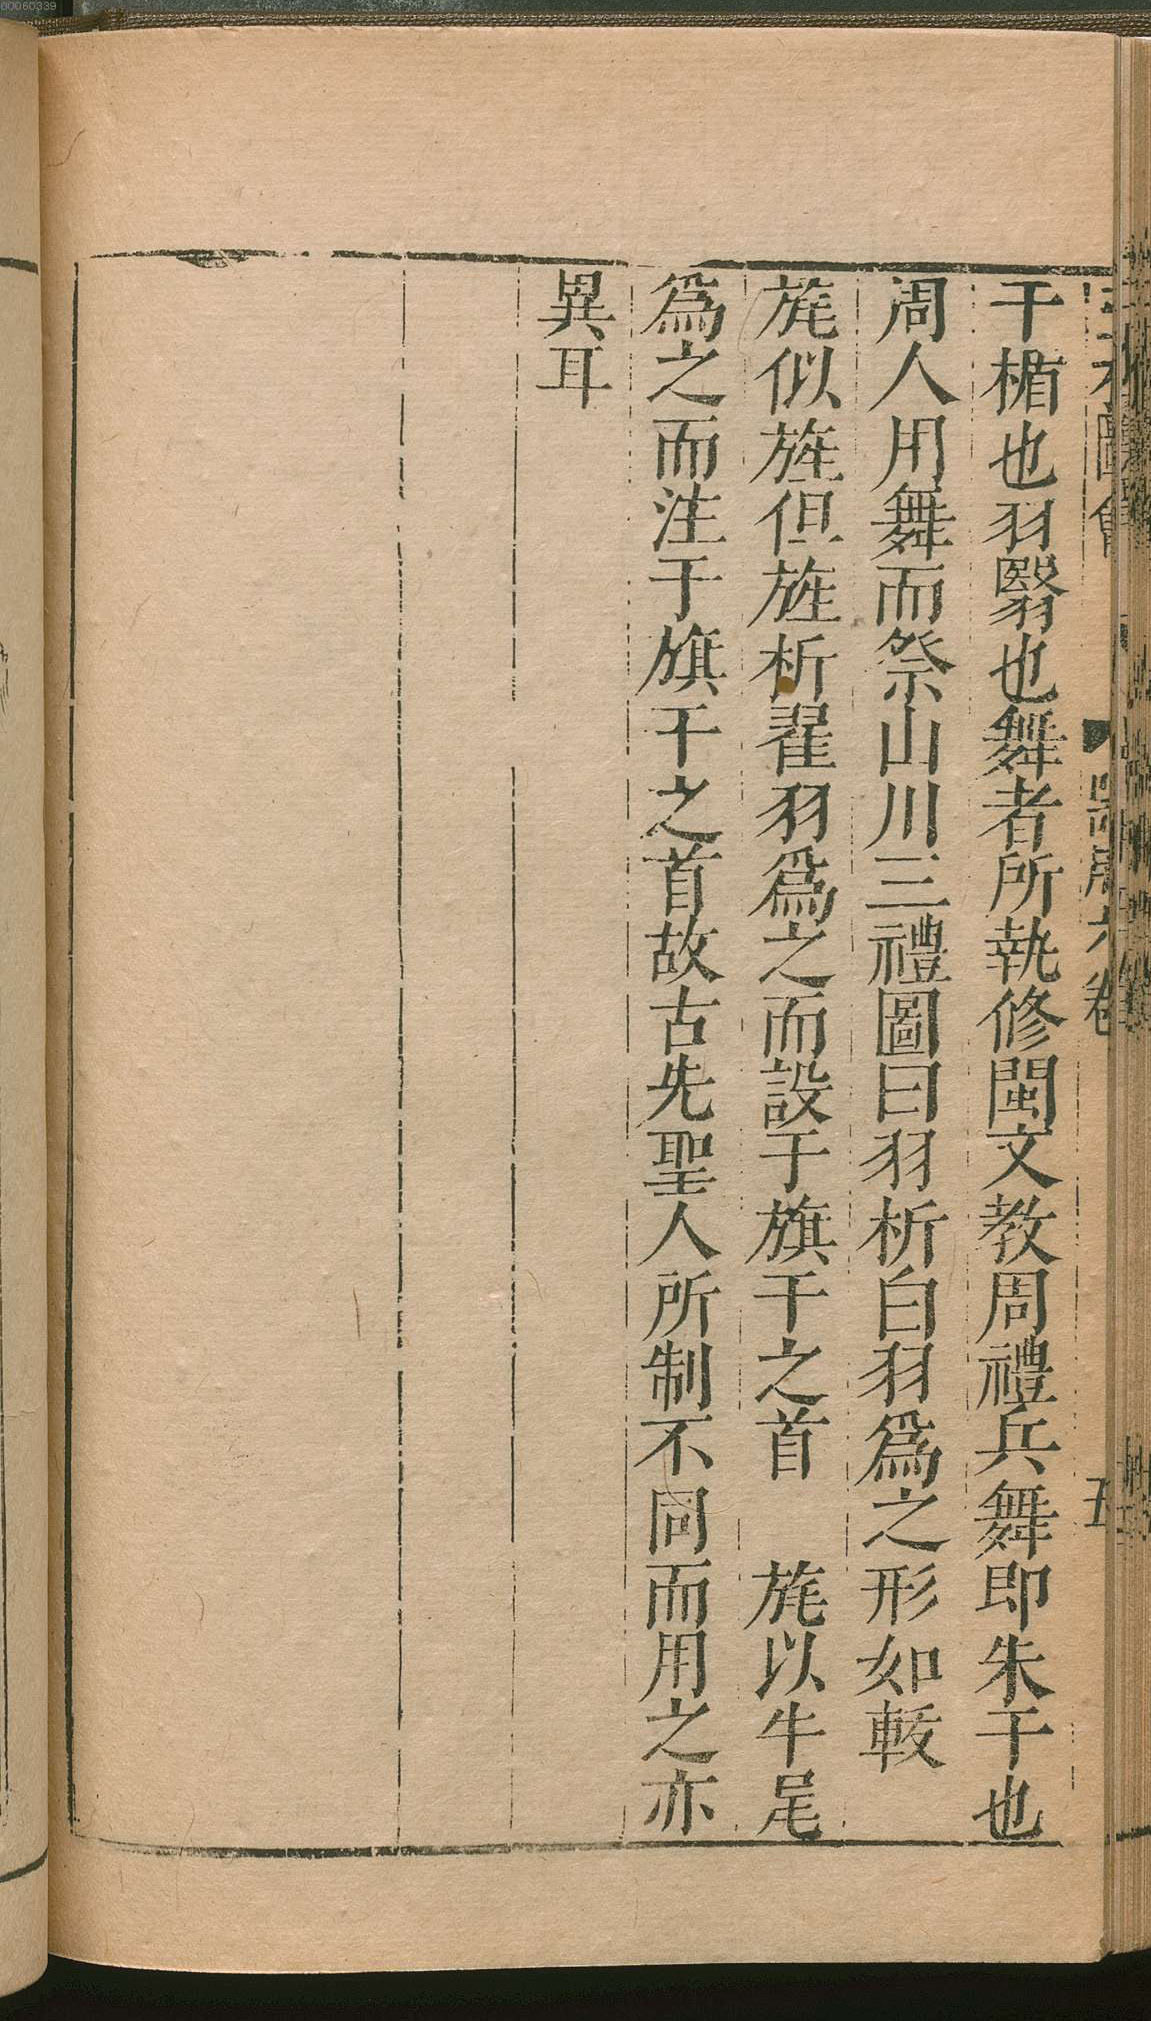 干楯也羽翳也舞者所執修闡文教周禮兵舞即朱干也
周人用舞而祭山川三禮圖曰羽析白羽爲之形如帗
旄似旌但旌析翟羽爲之而設于旗干之首 旄以牛尾
爲之而注于旗干之首故古先聖人所制不同而用之亦
異耳
00060339